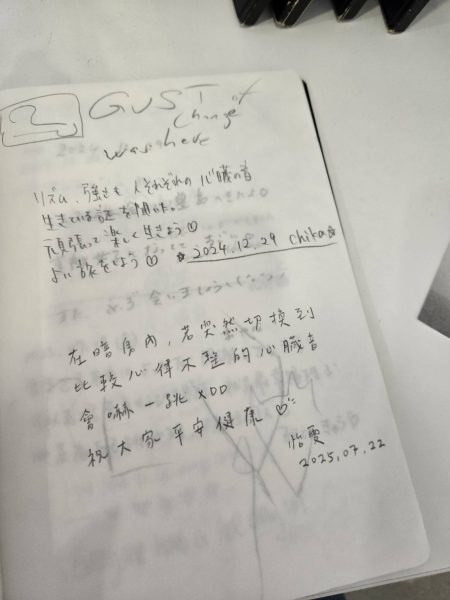 GUST of
Change
was here
リズム、強さも人それぞれの心臓の音
生きている証を聞いた。
頑張って楽しく生きよう♡
よい旅をしよう♡ ☆2024.12.24 chika☆
在暗房內,若突然切換到
比較心律不整的心臟音
會嚇一跳XDD
祝大家平安健康♡
怡雯
2025.07.22